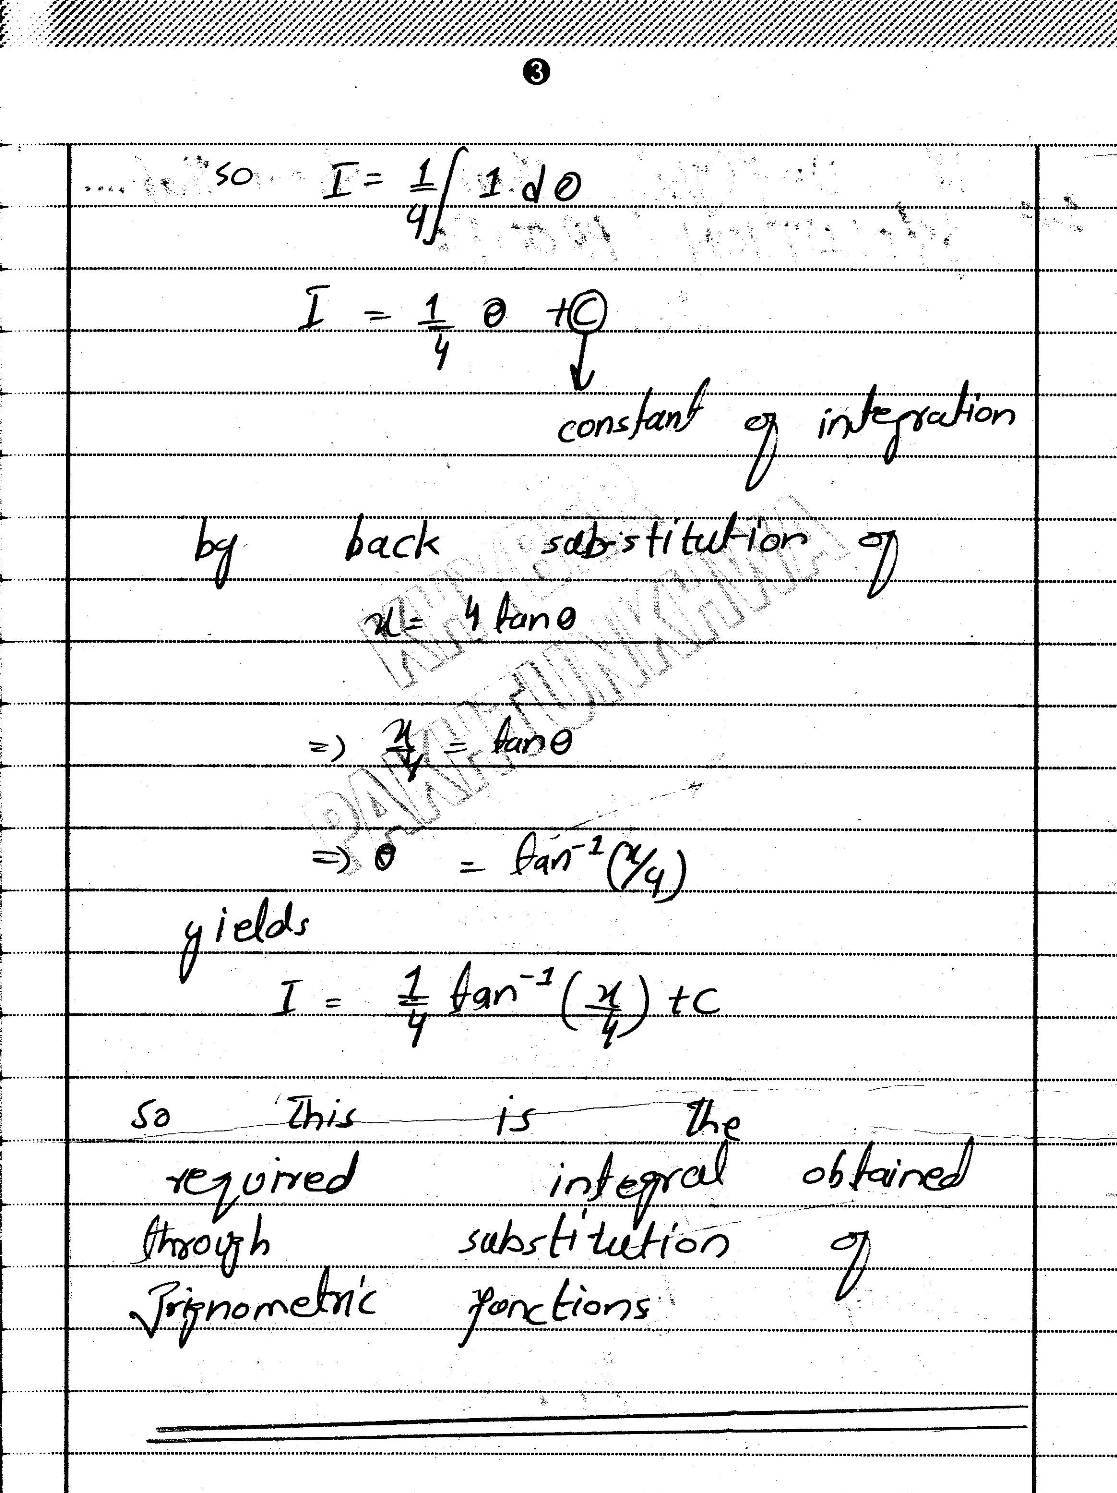 3
so I = 1/4 ∫ 1. dθ
I = 1/4 θ + C
constant of integration
by back substitution of
x = 4 tanθ
=> x/4 = tanθ
=> θ = tan⁻¹(x/4)
yields
I = 1/4 tan⁻¹(x/4) + C
so This is the
required integral obtained
through substitution of
Trignometric functions
KHYBER
PAKHTUNKHWA